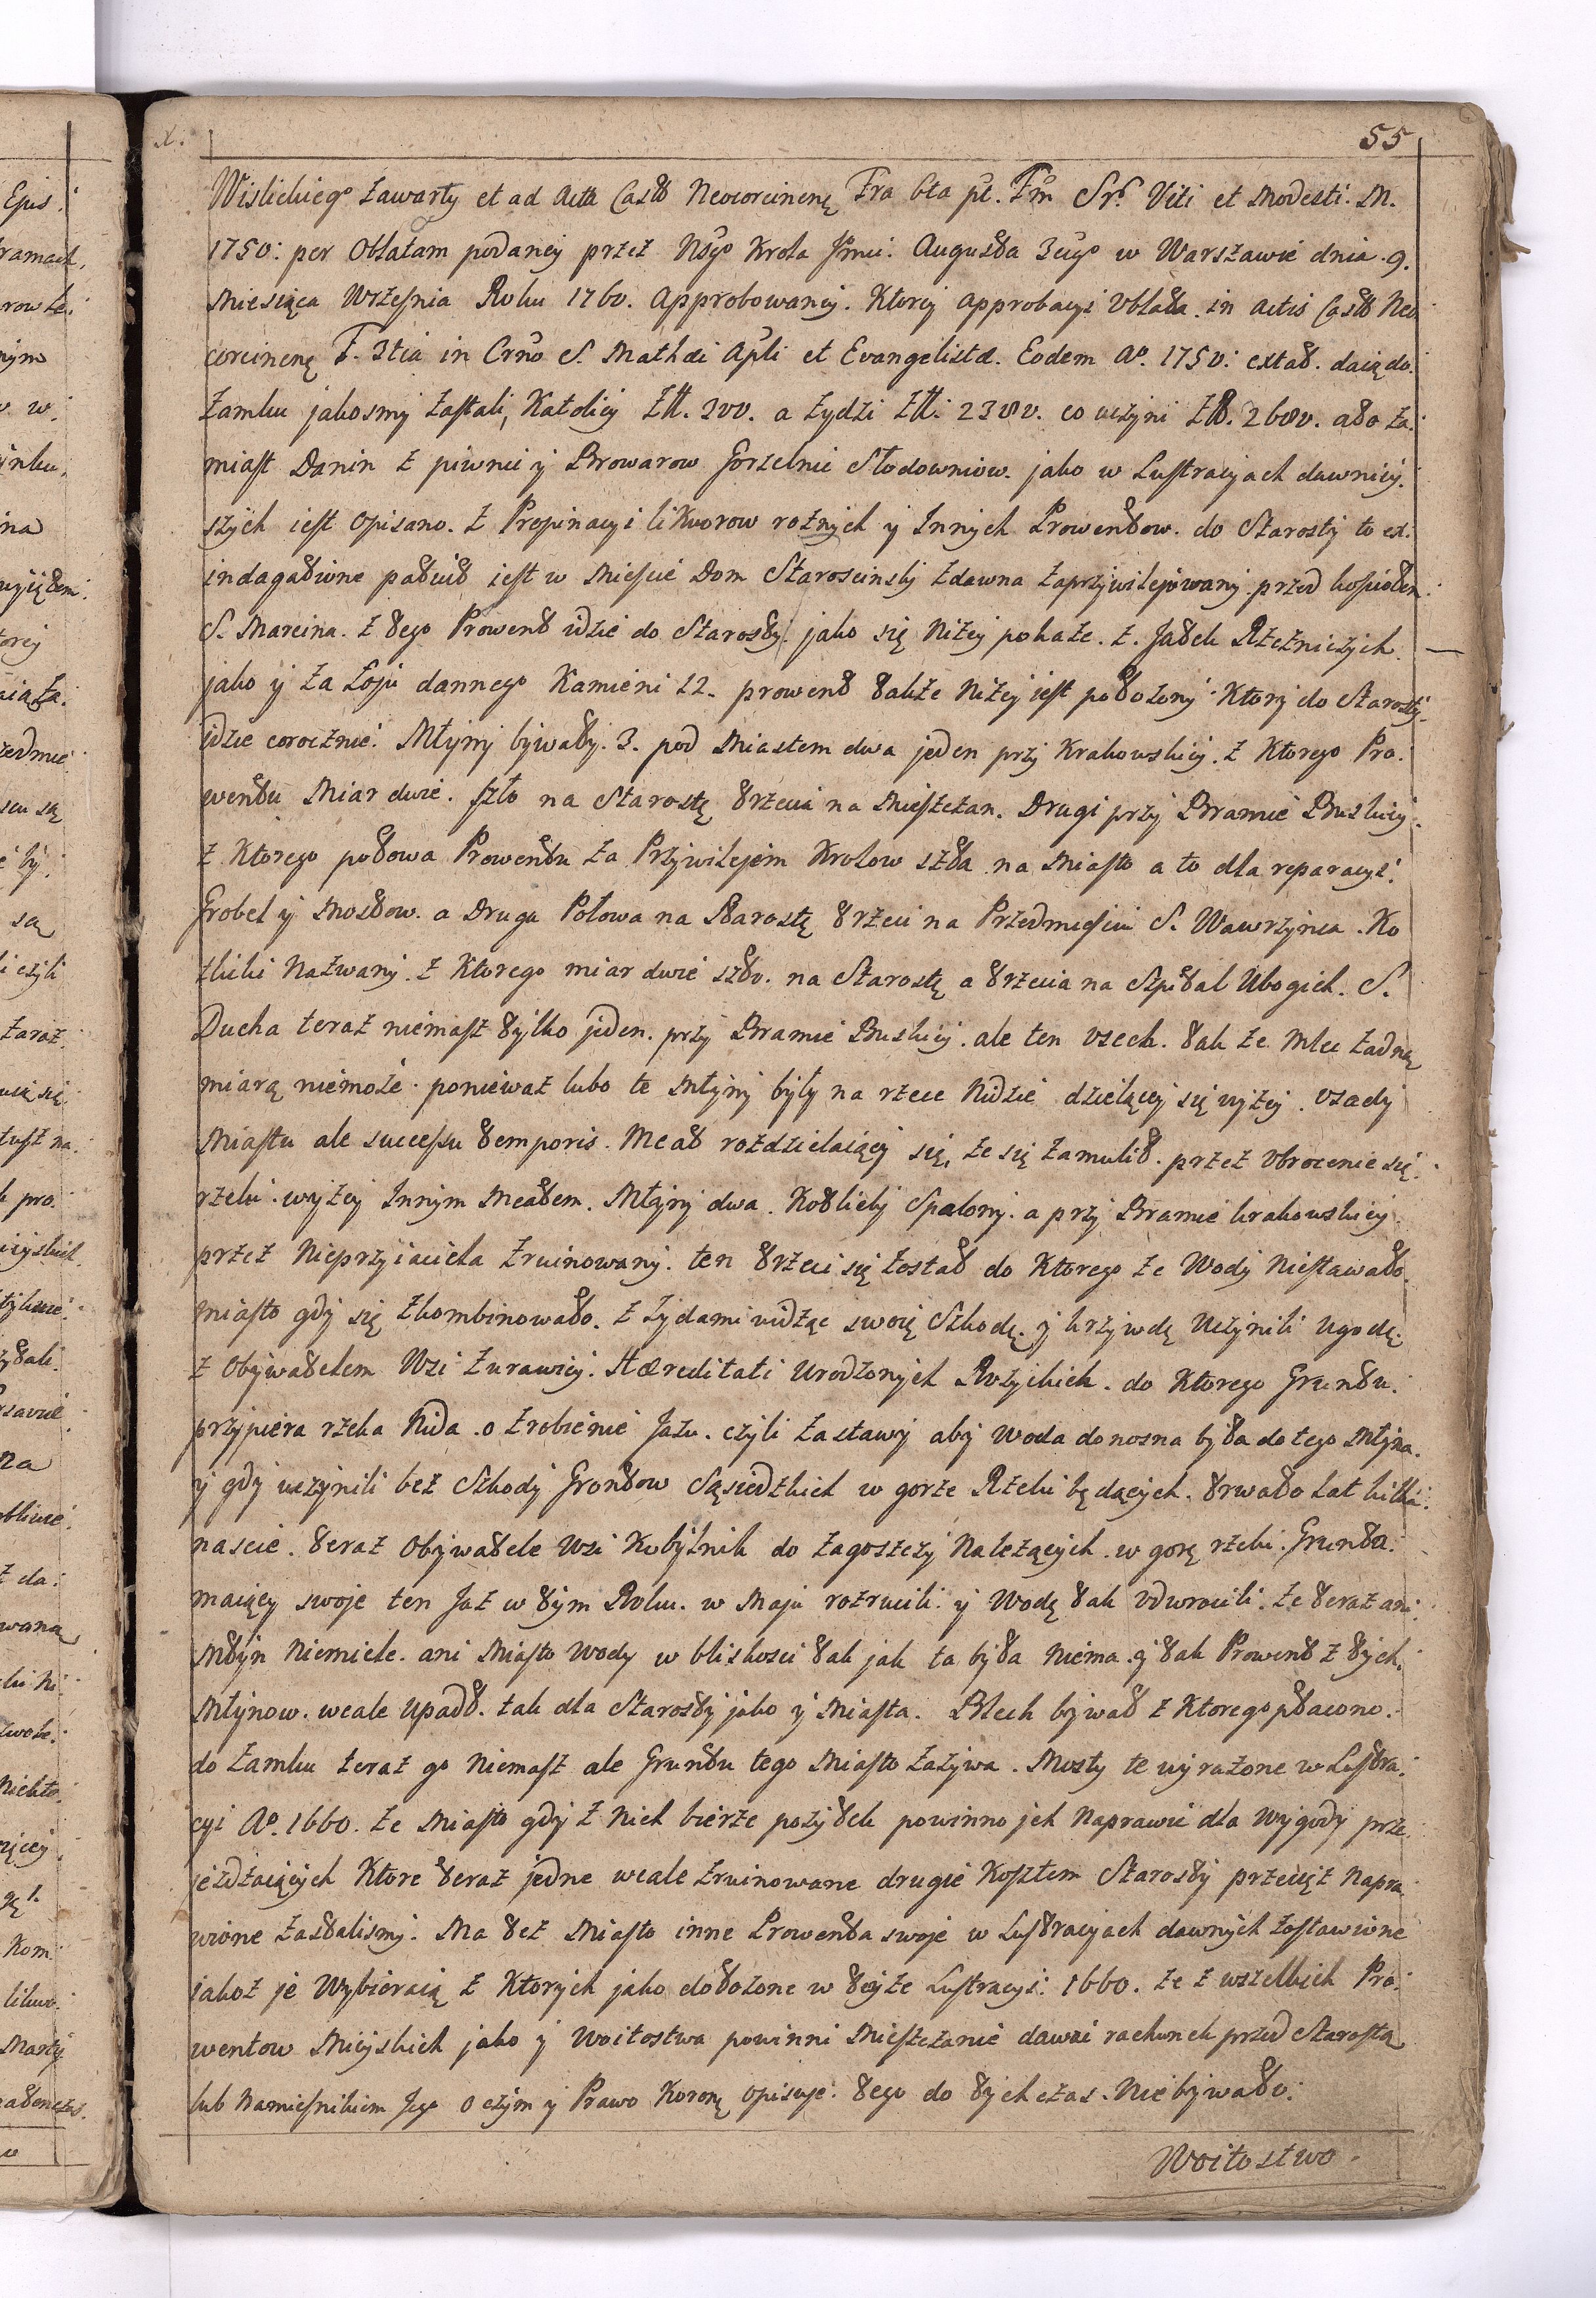 55
Wislickiego zawarty et ad Acta Castr Neocorcinenę Fra 6ta pt. Fm Srū Viti et Modesti. M.
1750: per Oblatam podaney przez Nsgo Krola Jmci. Augusta 3cigo w Warszawie dnia. 9.
Miesiąca Wrzesnia Roku 1760. Approbowaney. Ktorey approbacyi Oblata. in Actis Castr Neo
corcinenę F. 3tia in Crno S. Mathæi Apli et Evangelistæ. Eodem Ao. 1750: extat. daią do.
Zamku jakosmy zastali, Katolicy Złt. 300. a Zydzi Złt. 2380. co uczyni Złt. 2680. a to za.
miast Danin z piwnic y Browarow Gorzelnic Słodowniow. jako w Lustracyach dawniey.
szych iest opisano. Z Propinacyi likworow roznych y Innych Prowentow. do Starosty to ex.
indagatione patuit iest w Miescie Dom Staroscinsky zdawna zaprzywilejowany. przed kosciołem.
S. Marcina. z tego Prowent idzie do Starosty. jako się nizey pokaze. z. Jatek Rzezniczych.
jako y za Łoju dannego Kamieni 12. prowent takze nizey iest położony. Ktory do Starosty.
idzie corocznie. Młyny bywały. 3. pod Miastem dwa jeden przy Krakowskiey. z Ktorego Pro.
wentu Miar dwie. szło na Starostę trzecia na Mieszczan. Drugi przy Bramie Buskiey.
z Ktorego połowa Prowentu za Przywilejem Krolow szła na Miasto a to dla reparacyi.
Grobel y Mostow. a Druga Połowa na Starostę trzeci na Przedmiesciu S. Wawrzynca. Ko
tlicki Nazwany. z Ktorego miar dwie szło. na Starostę a trzecia na Szpital Ubogich. S.
Ducha teraz niemasz tylko jeden. przy Bramie Buskiey. ale ten usech. tak ze mleć zadną
miarą niemoże. poniewaz lubo te Młyny były na rzece Nidzie dzielącey się wyzey. osady
Miasta ale successu temporis. Meat rozdzielaiący się, ze się zamulił. przez obrocenie się.
rzeki. wyzey Innym Meatem. Młyny dwa. Kotlicky Spalony. a przy Bramie krakowskiey.
przez Nieprzyiaciela zruinowany. ten trzeci się został do Ktorego ze Wody Niestawało.
miasto gdy się zkombinowało. z Zydami widząc swoię Szkodę. y krzywdę Uczynili ugodę.
z Obywatelem Wsi Zurawicy. Hæreditati Urodzonych Rożyckich. do Ktorego Gruntu.
przypiera rzeka Nida. o zrobienie Jazu. czyli zastawy aby woda donosna była do tego Młyna.
y gdy uczynili bez Szkody Grontow Sąsiedzkich w gorze Rzeki będących. trwało Lat kilka.
nascie. teraz Obywatele Wsi Kobylnik do Zagoszczy Nalezących. w gorę rzeki. Grunta.
maiący swoje ten Jaz w tym Roku. w Maju rozrucili. y Wodę tak odwrocili. ze teraz ani.
Młyn Niemiele. ani Miasto Wody w bliskosci tak jak ta była niema. y tak Prowent z tych.
Młynow. wcale Upadł. tak dla Starosty jako y Miasta. Blech bywał z Ktorego płacono.
do Zamku teraz go Niemasz ale Gruntu tego Miasto Zażywa. Mosty te wyrazone w Lustra.
cyi Ao. 1660. Ze Miasto gdy z nich bierze pożytek powinno jch Naprawić dla Wygody prze.
jezdzaiących Ktore teraz jedne wcale zruinowane drugie Kosztem Starosty przecięz napra
wione zastalismy. Ma tez Miasto inne Prowenta swoje w Lustracyach dawnych zostawione
jakoz je Wybieraią z Ktorych jako dołożone w teyże Lustracyi. 1660. ze z wszelkich Pro.
wentow Mieyskich jako y Woitostwa powinni Mieszczanie dawać rachunek przed Starostą
lub Namiesnikiem Jego o czym y Prawo Koronę Opisuje. tego do tych czas. Nie bywało.
Woitostwo.